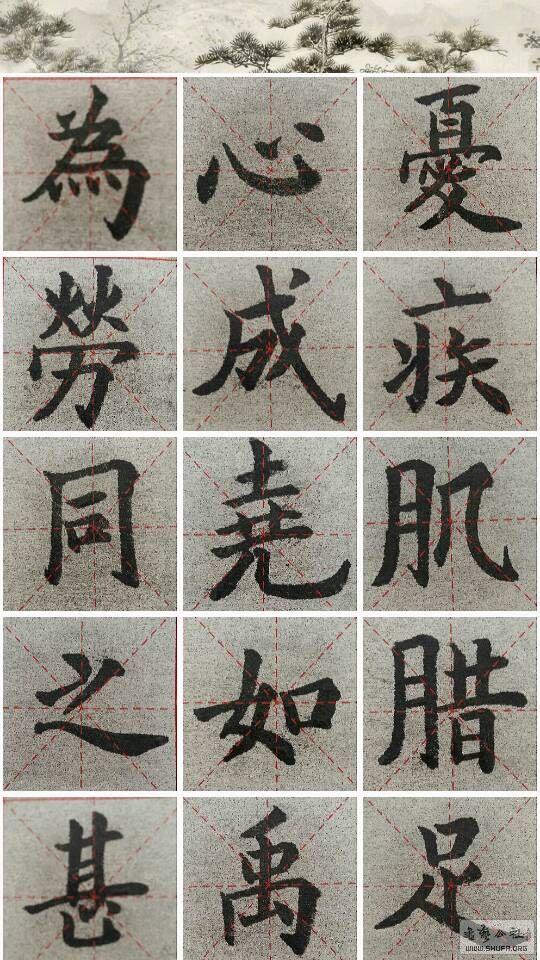 為心憂
勞成疾
同堯肌
之如腊
甚禹足
WWW.SHUFA.ORG